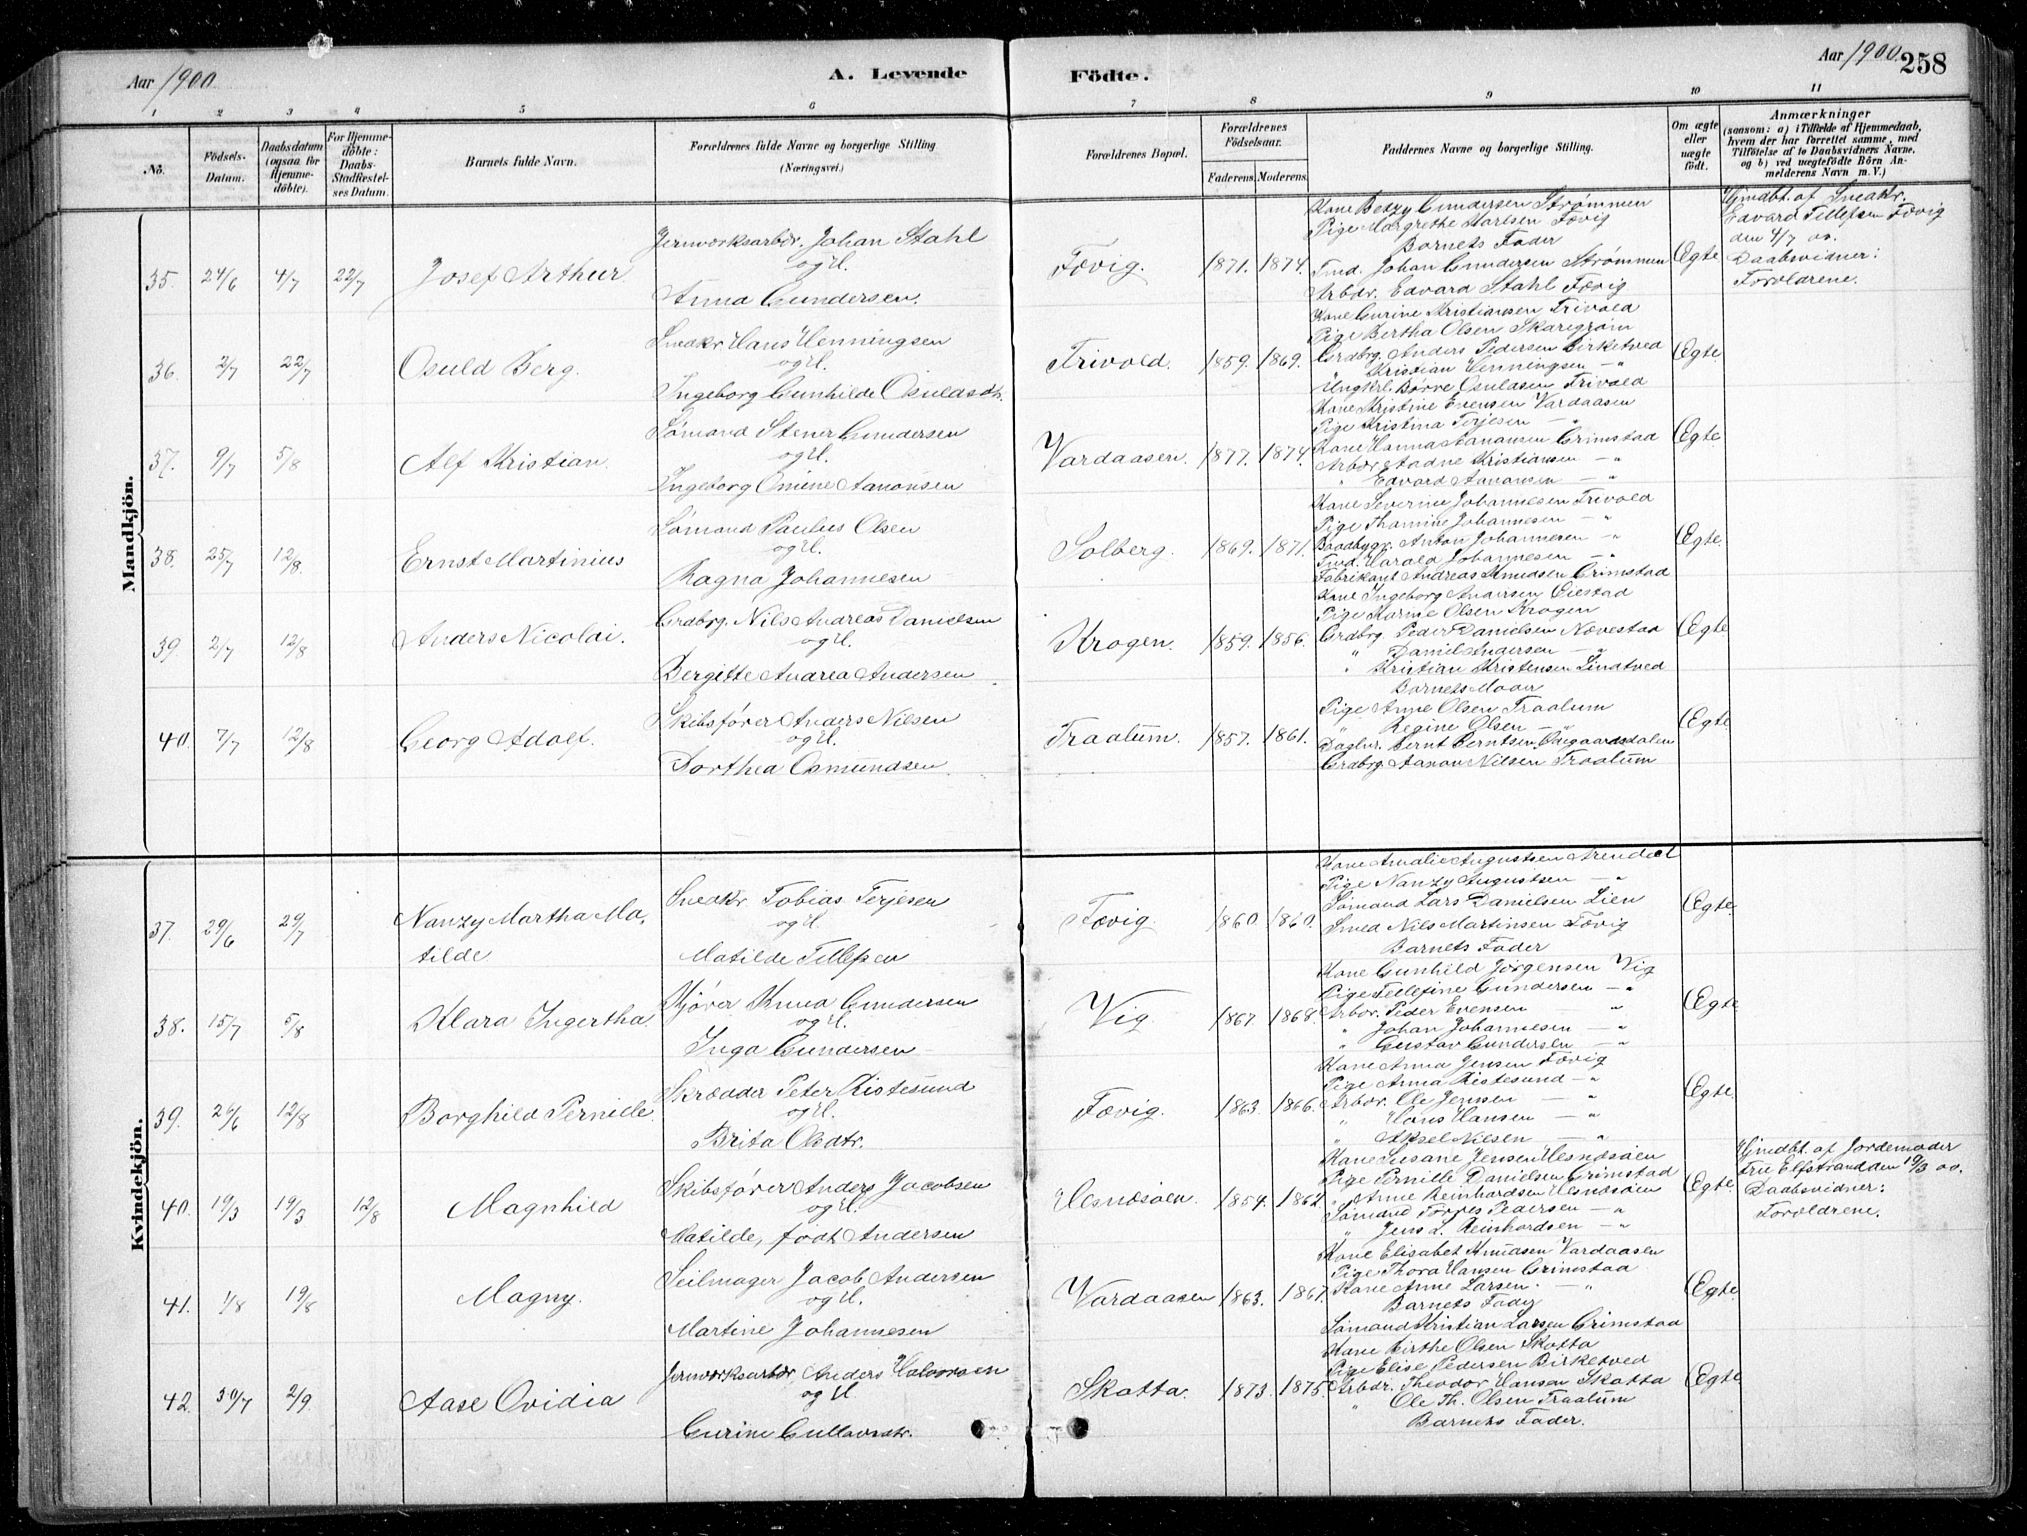 Aar 1900
A. Levende
Födte.
Aar 1900.
258
1 2 3 4 5 6 7 8 9 10 11
No.
Födsels-
Datum.
Daabsdatum
(ogsaa for
Hjemme-
döbte).
For Hjemme-
döbte:
Daabs-
Stadfestel-
ses Datum.
Barnets fulde Navn.
Forældrenes fulde Navne og borgerlige Stilling
(Næringsvei.)
Forældrenes Bopæl.
Forældrenes
Födselsaar.
Faderens. Moderens.
Faddernes Navne og borgerlige Stilling.
Om ægte
eller
uægte
födt.
Anmærkninger
(saasom: a) i Tilfælde af Hjemmedaab,
hvem der har forrettet samme, med
Tilföielse af to Daabsvidners Navne,
og b) ved uægtefödte Börn An-
melderens Navn m. V.)
Mandkjön.
35. 24/6 4/7 22/7 Josef Arthur.
Jernverksarbdr. Johan Stahl
og H.
Anna Gundersen.
Fævig. 1871. 1874.
Kone Betzy Gundersen Strømmen
Pige Margrethe Karlsen Fævig
Barnets Fader
Tmd. Johan Gundersen Strømmen
Arbdr. Edvard Stahl Fævig
Egte
Hjmdbt. af Sneakr.
Edvard Tellefsen Fævig
den 4/7 00.
Daabsvidner:
Forældrene.
36. 2/7 22/7 Osuld Berg.
Sneakr Hans Henningsen
og H.
Ingeborg Gunhilde Osuldsdtr.
Trivold. 1859. 1869.
Kone Gurine Kristiansen Trivold
Pige Bertha Olsen Skaregrøm
Grdbrg. Anders Pedersen Birketved
Kristian Henningsen — "
Ungkrl. Børre Osuldsen Trivold
Egte.
37. 9/7 5/8 Alf Kristian.
Sømand Stener Gundersen
og H.
Ingeborg Omine Aanonsen
Vardaasen. 1877. 1874.
Kone Kristine Evensen Vardaasen
Pige Kristina Terjesen — "
Kone Hanna Aanonsen Grimstad
Arbdr Aadne Kristiansen — "
" Edvard Aanonsen — "
Egte.
38. 25/7 12/8. Ernst Martinius
Sømand Paulus Olsen
og H.
Ragna Johannesen
Solberg. 1869. 1871.
Kone Severine Johannesen Trivold
Pige Thamine Johannesen "
Baadbygr. Anton Johannesen — "
Tmd. Harald Johannesen — "
Fabrikant Andreas Knudsen Grimstad
Egte.
39. 2/7 12/8 Anders Nicolai.
Grdbrg. Nils Andreas Danielsen
og H.
Bergitte Andrea Andersen
Krogen. 1859. 1856.
Kone Ingeborg Andersen Øiestad
Pige Karine Olsen Krogen
Grdbrg Peder Danielsen Nævestad
" Daniel Andersen — "
" Kristian Kristensen Lindtved
Barnets Moder
Egte
40. 7/7 12/8 Georg Adolf.
Skibsfører Anders Nilsen
og H.
Dorthea Osmundsen
Traalum. 1857. 1861.
Pige Anne Olsen Traalum
" Regine Olsen — "
Daglnr. Bernt Berntsen Ødegaardsdalen
Grdbrg. Aanon Nilsen Traalum
Egte.
Kvindekjön.
37. 29/6 29/7 Nanzy Martha Ma-
tilde
Sneakr Tobias Terjesen
og H.
Matilde Tellefsen
Fævig. 1860. 1860.
Kone Amalie Augustsen Arendal
Pige Nanzy Augustsen — "
Sømand Lars Danielsen Lien
Smed Nils Martinsen Fævig
Barnets Fader
Egte.
38. 15/7 5/8 Klara Ingertha.
Kjører Knud Gundersen
og H.
Inga Gundersen
Vig 1867. 1868.
Kone Gunhild Jørgensen Vig
Pige Tellefine Gundersen — "
Arbdr. Peder Evensen — "
" Johan Johannesen — "
" Gustav Gundersen — "
Egte.
39. 26/6 12/8 Borghild Pernille.
Skrædder Peter Kistesund
og H.
Brita Olsdtr.
Fævig. 1863. 1866.
Kone Anna Jensen Fævig
Pige Anna Kistesund — "
Arbdr. Ole Jensen — "
" Hans Hansen — "
" Aksel Nilsen — "
Egte.
40. 19/3 19/3 12/8 Magnhild
Skibsfører Anders Jacobsen
og H.
Matilde, født Andersen
Hesnæsøen. 1854. 1862.
Kone Susane Jensen Hesnæsøen
Pige Pernille Danielsen Grimstad
" Anne Reinhardsen Hesnæsøen
Sømand Torjes Pedersen — "
" Jens L. Reinhardsen — "
Egte.
Hjmdbt. af Jordemoder
Frie Elfstrand den 19/3 00.
Daabsvidner:
Forældrene.
41. 1/8 19/8 Magny.
Seilmager Jacob Andersen
og H.
Martine Johannesen
Vardaasen 1863. 1867.
Kone Elisabet Knudsen Vardaasen
Pige Thora Hansen Grimstad
Kone Anne Larsen — "
Barnets Fader
Sømand Kristian Larsen Grimstad
Egte.
42. 30/7 2/9. Aase Ovidia
Jernværksarbdr Anders Halvorsen
og H
Gurine Gullavsdtr.
Skatta. 1873. 1875.
Kone Birthe Olsen Skatta
Pige Elise Pedersen Birketved
Arbdr. Theodor Hansen Skatta
" Ole Th. Olsen Traalum
Barnets Fader.
Egte.